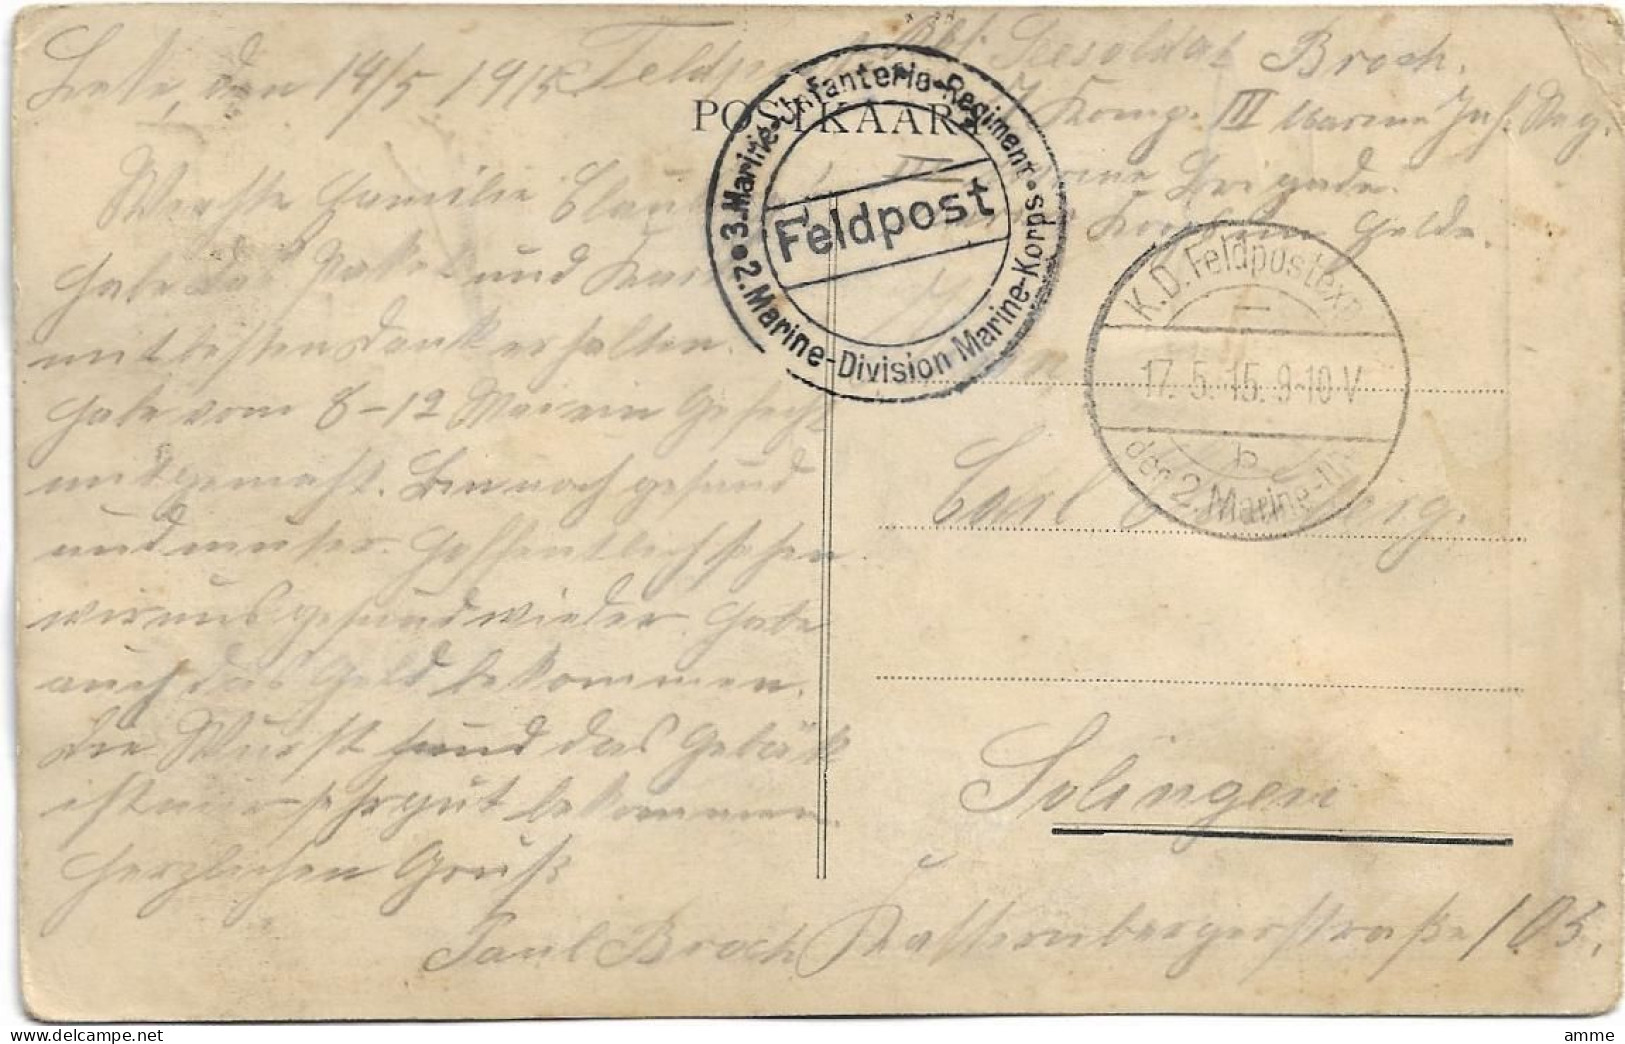 den 14/5 1915
Feldp Abs. Seesoldat Broch.
7 Komp. III Marine Inf. Reg.
Brigade.
Korps im Felde.
POSTKAART
3. Marine-Infanterie-Regiment
Feldpost
2. Marine-Division Marine-Korps
K.D. Feldpostexp.
17.5.15. 9-10 V
b
der 2. Marine-Div
Werthe Familie
Habe das Paket und Kart
mit besten Dank erhalten.
Habe vom 8-12 Mai ein Gefecht
mitgemacht. Bin noch gesund
und munter. Hoffentlich sehen
wir uns gesund wieder. Habe
auch das Geld bekommen.
Die Wurst und das Gebäk
ist mir sehr gut bekommen.
Herzlichen Gruß
Paul Broch
Carl
Solingen
Katternbergerstraße 105.
amme